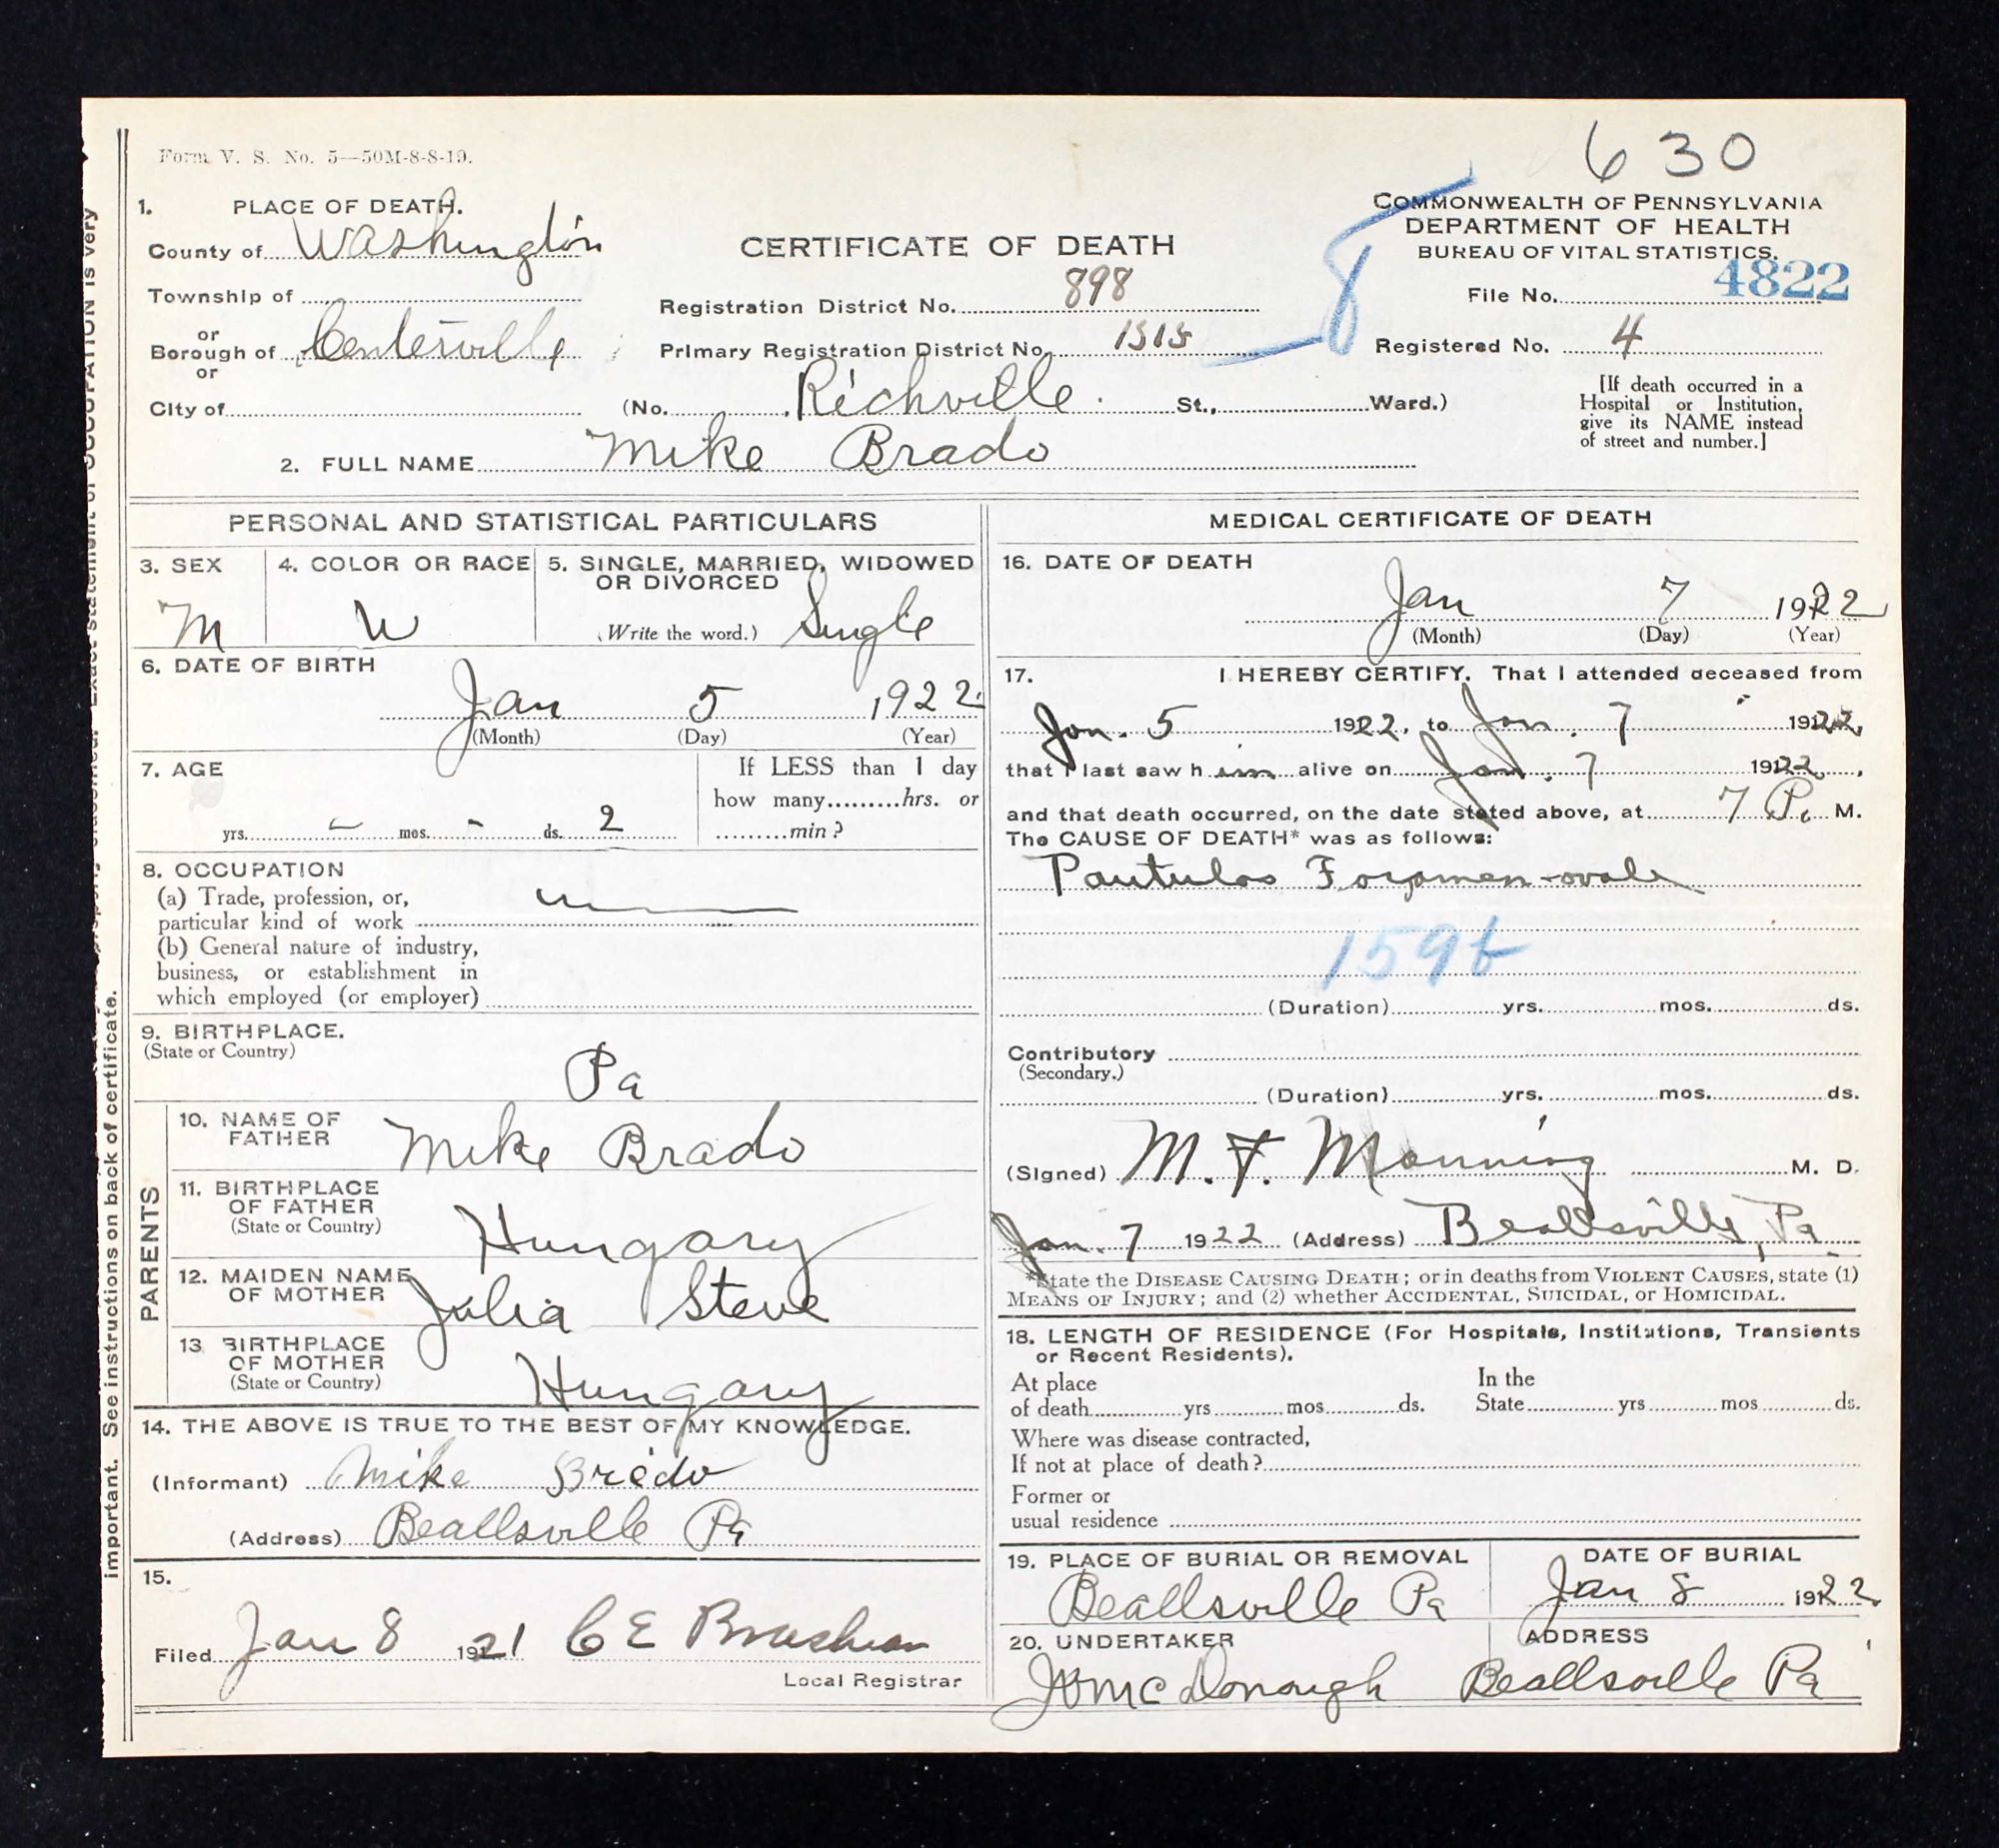 630
Form V. S. No. 5—50M-8-8-19.
COMMONWEALTH OF PENNSYLVANIA
DEPARTMENT OF HEALTH
BUREAU OF VITAL STATISTICS.
CERTIFICATE OF DEATH
1. PLACE OF DEATH.
County of Washington
Township of
or
Borough of Centerville
or
City of
Registration District No. 898
Primary Registration District No. 1515
8
File No. 4822
Registered No. 4
(No. Richville St., Ward.)
[If death occurred in a
Hospital or Institution,
give its NAME instead
of street and number.]
2. FULL NAME Mike Brado
PERSONAL AND STATISTICAL PARTICULARS
3. SEX
M
4. COLOR OR RACE
W
5. SINGLE, MARRIED, WIDOWED
OR DIVORCED
(Write the word.) Single
6. DATE OF BIRTH
Jan 5 1922
(Month) (Day) (Year)
7. AGE
yrs. - mos. - ds. 2
If LESS than 1 day
how many.........hrs. or
.........min?
8. OCCUPATION
(a) Trade, profession, or,
particular kind of work
(b) General nature of industry,
business, or establishment in
which employed (or employer)
9. BIRTHPLACE.
(State or Country)
Pa
PARENTS
10. NAME OF
FATHER
Mike Brado
11. BIRTHPLACE
OF FATHER
(State or Country)
Hungary
12. MAIDEN NAME
OF MOTHER
Julia Steve
13 BIRTHPLACE
OF MOTHER
(State or Country)
Hungary
14. THE ABOVE IS TRUE TO THE BEST OF MY KNOWLEDGE.
(Informant) Mike Brado
(Address) Beallsville Pa
15.
Filed Jan 8 1921 C E
Local Registrar
MEDICAL CERTIFICATE OF DEATH
16. DATE OF DEATH
Jan 7 1922
(Month) (Day) (Year)
17. I HEREBY CERTIFY. That I attended deceased from
Jan. 5 1922, to Jan. 7 1922,
that I last saw him alive on Jan. 7 1922,
and that death occurred, on the date stated above, at 7 P. M.
The CAUSE OF DEATH* was as follows:
Pautulos Foramen-ovale
159b
(Duration) yrs. mos. ds.
Contributory
(Secondary.)
(Duration) yrs. mos. ds.
(Signed) M. F. Manning M. D.
Jan. 7 1922 (Address) Beallsville, Pa
*State the DISEASE CAUSING DEATH; or in deaths from VIOLENT CAUSES, state (1)
MEANS OF INJURY; and (2) whether ACCIDENTAL, SUICIDAL, or HOMICIDAL.
18. LENGTH OF RESIDENCE (For Hospitals, Institutions, Transients
or Recent Residents).
At place
of death yrs mos ds.
In the
State yrs mos ds.
Where was disease contracted,
If not at place of death?
Former or
usual residence
19. PLACE OF BURIAL OR REMOVAL
Beallsville Pa
DATE OF BURIAL
Jan 8 1922
20. UNDERTAKER
McDonough
ADDRESS
Beallsville Pa
important. See instructions on back of certificate.
Exact statement of OCCUPATION is very